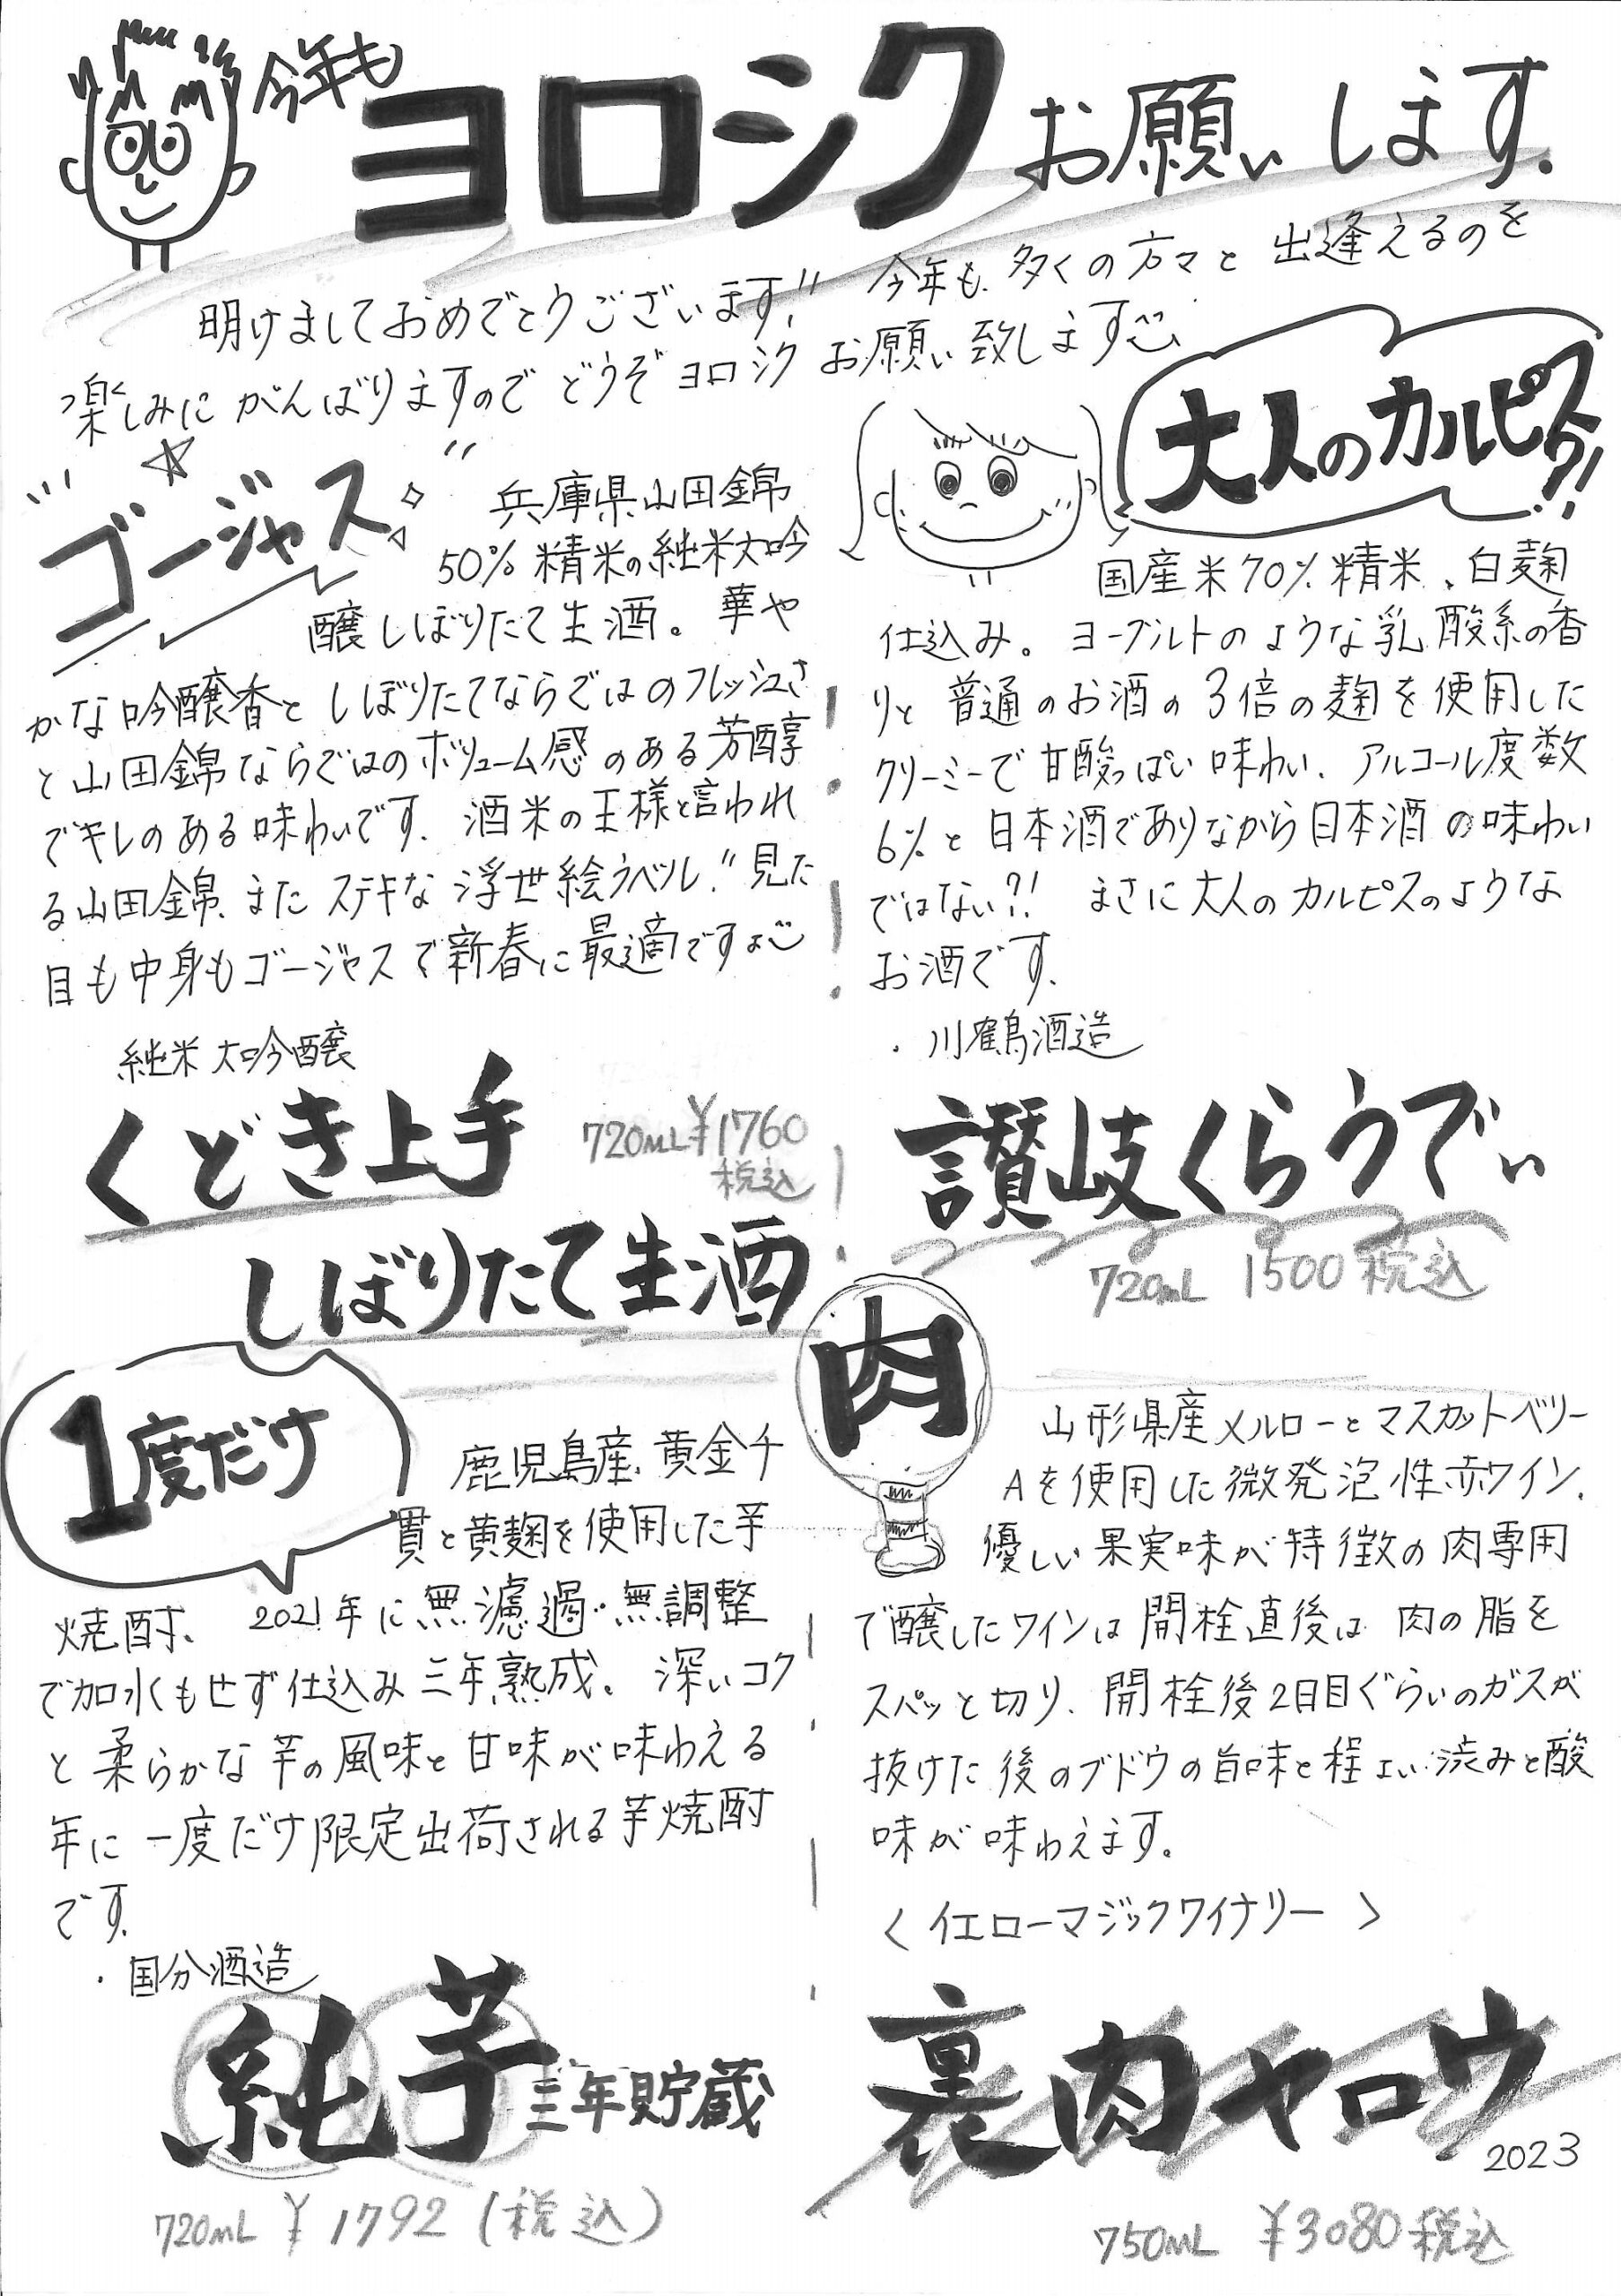 今年も
ヨロシク お願いします.
明けましておめでとうございます!! 今年も、多くの方々と 出逢えるのを
楽しみに がんばりますので どうぞ ヨロシク お願い 致します
ゴージャス
兵庫県山田錦
50%精米の純米大吟
醸しぼりたて生酒。華や
かな吟醸香と しぼりたてならではのフレッシュさ
と山田錦ならではのボリューム感のある芳醇
でキレのある味わいです. 酒米の王様と言われ
る山田錦、また ステキな 浮世絵ラベル!! 見た
目も中身もゴージャスで新春に最適ですよ
純米 大吟醸
くどき上手
720mL ¥1760
税込
しぼりたて生酒
大人のカルピス?!
国産米70%精米、白麹
仕込み。ヨーグルトのような乳酸系の香
りと 普通のお酒の 3倍の麹を使用した
クリーミーで 甘酸っぱい 味わい、アルコール度数
6%と日本酒でありながら日本酒の味わい
ではない?! まさに大人のカルピスのような
お酒です.
・川鶴酒造
讃岐くらうでぃ
720mL 1500税込
1度だけ
鹿児島産、黄金千
貫と黄麹を使用した芋
焼酎、2021年に無濾過・無調整
で加水もせず仕込み三年熟成。深いコク
と柔らかな芋の風味と甘味が味わえる
年に一度だけ限定出荷される芋焼酎
です.
・国分酒造
純芋 三年貯蔵
720mL ¥1792(税込)
肉
山形県産メルローとマスカットベリー
Aを使用した微発泡性赤ワイン、
優しい果実味が特徴の肉専用
で醸したワインは開栓直後は 肉の脂を
スパッと切り、開栓後2日目ぐらいのガスが
抜けた後のブドウの旨味と程よい渋みと酸
味が味わえます。
<イエローマジックワイナリー>
裏肉ヤロウ
2023
750mL ¥3080税込